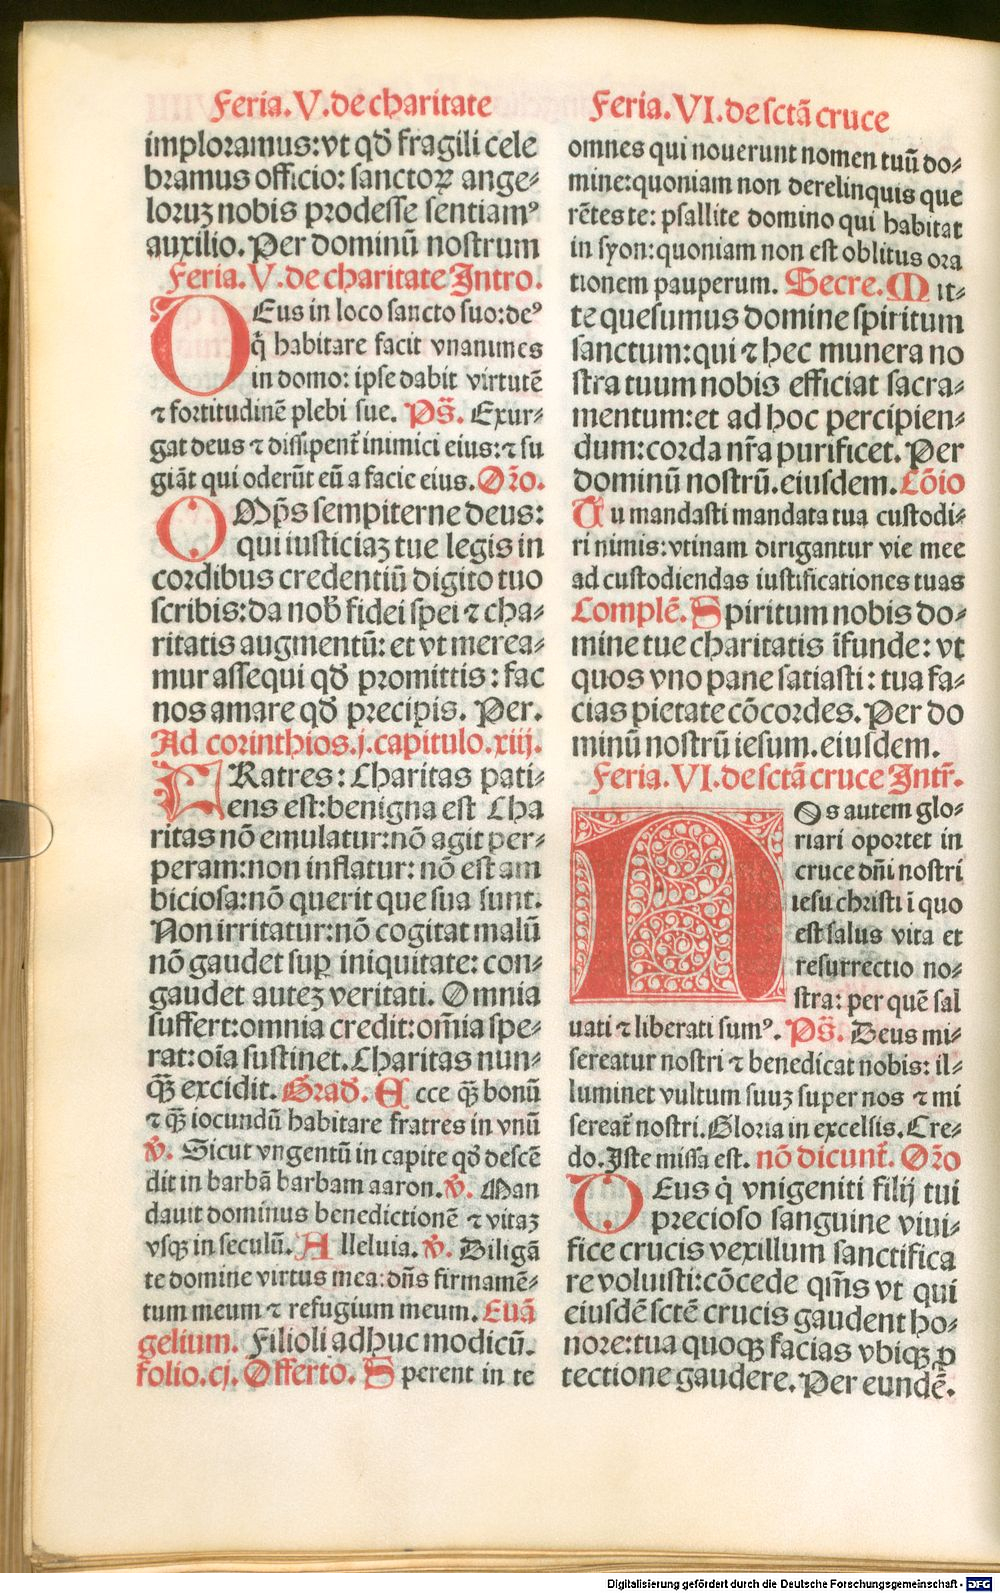 Feria. V. de charitate
imploramus: vt qd̃ fragili cele
bramus officio: sanctoꝝ ange⸗
loruꝫ nobis prodesse sentiamꝰ
auxilio. Per dominũ nostrum
Feria. V. de charitate Intro.
DEus in loco sancto suo: deꝰ
q̃ habitare facit vnanimes
in domo: ipse dabit virtutẽ
⁊ fortitudinẽ plebi sue. Ps̃. Exur⸗
gat deus ⁊ dissipent̃ inimici eius: ⁊ fu
giãt qui oderũt eũ a facie eius. Orõ.
OMp̃s sempiterne deus:
qui iusticiaꝫ tue legis in
cordibus credentiũ digito tuo
scribis: da nob̃ fidei spei ⁊ cha⸗
ritatis augmentũ: et vt merea⸗
mur assequi qd̃ promittis: fac
nos amare qd̃ precipis. Per.
Ad corinthios. j. capitulo. xiij.
FRatres: Charitas pati⸗
ens est: benigna est Cha
ritas nõ emulatur: nõ agit per⸗
peram: non inflatur: nõ est am
biciosa: nõ querit que sua sunt.
Non irritatur: nõ cogitat malũ
nõ gaudet suꝑ iniquitate: con⸗
gaudet auteꝫ veritati. Omnia
suffert: omnia credit: om̃ia spe⸗
rat: oĩa sustinet. Charitas nun⸗
q̃ꝫ excidit. Grad̃. Ecce q̃ꝫ bonũ
⁊ q̃ꝫ iocundũ habitare fratres in vnũ
ꝟ. Sicut vngentũ in capite qd̃ descẽ
dit in barbã barbam aaron. ꝟ. Man
dauit dominus benedictionẽ ⁊ vitaꝫ
vsqꝫ in seculũ. Alleluia. ꝟ. Diligã
te domine virtus mea: dñs firmamẽ⸗
tum meum ⁊ refugium meum. Euã
gelium. Filioli adhuc modicũ.
folio. cj. Offerto. Sperent in te
Feria. VI. de sctã cruce
omnes qui nouerunt nomen tuũ do⸗
mine: quoniam non derelinquis que
rẽtes te: psallite domino qui habitat
in syon: quoniam non est oblitus ora
tionem pauperum. Secre. Mit⸗
te quesumus domine spiritum
sanctum: qui ⁊ hec munera no
stra tuum nobis efficiat sacra⸗
mentum: et ad hoc percipien⸗
dum: corda nr̃a purificet. Per
dominũ nostrũ. eiusdem. Cõio
Tu mandasti mandata tua custodi⸗
ri nimis: vtinam dirigantur vie mee
ad custodiendas iustificationes tuas
Complẽ. Spiritum nobis do⸗
mine tue charitatis ĩfunde: vt
quos vno pane satiasti: tua fa⸗
cias pietate cõcordes. Per do
minũ nostrũ iesum. eiusdem.
Feria. VI. de sctã cruce Intr̃.
NOs autem glo⸗
riari oportet in
cruce dñi nostri
iesu christi ĩ quo
est salus vita et
resurrectio no⸗
stra: per quẽ sal
uati ⁊ liberati sumꝰ. Ps̃. Deus mi⸗
sereatur nostri ⁊ benedicat nobis: il⸗
luminet vultum suuꝫ super nos ⁊ mi
sereat̃ nostri. Gloria in excelsis. Cre⸗
do. Iste missa est. nõ dicunt̃. Orõ
DEus q̃ vnigeniti filij tui
precioso sanguine viui⸗
fice crucis vexillum sanctifica
re voluisti: cõcede qm̃s vt qui
eiusdẽ sctẽ crucis gaudent ho⸗
nore: tua quoqꝫ facias vbiqꝫ ꝓ
tectione gaudere. Per eundẽ.
Digitalisierung gefördert durch die Deutsche Forschungsgemeinschaft - DFG